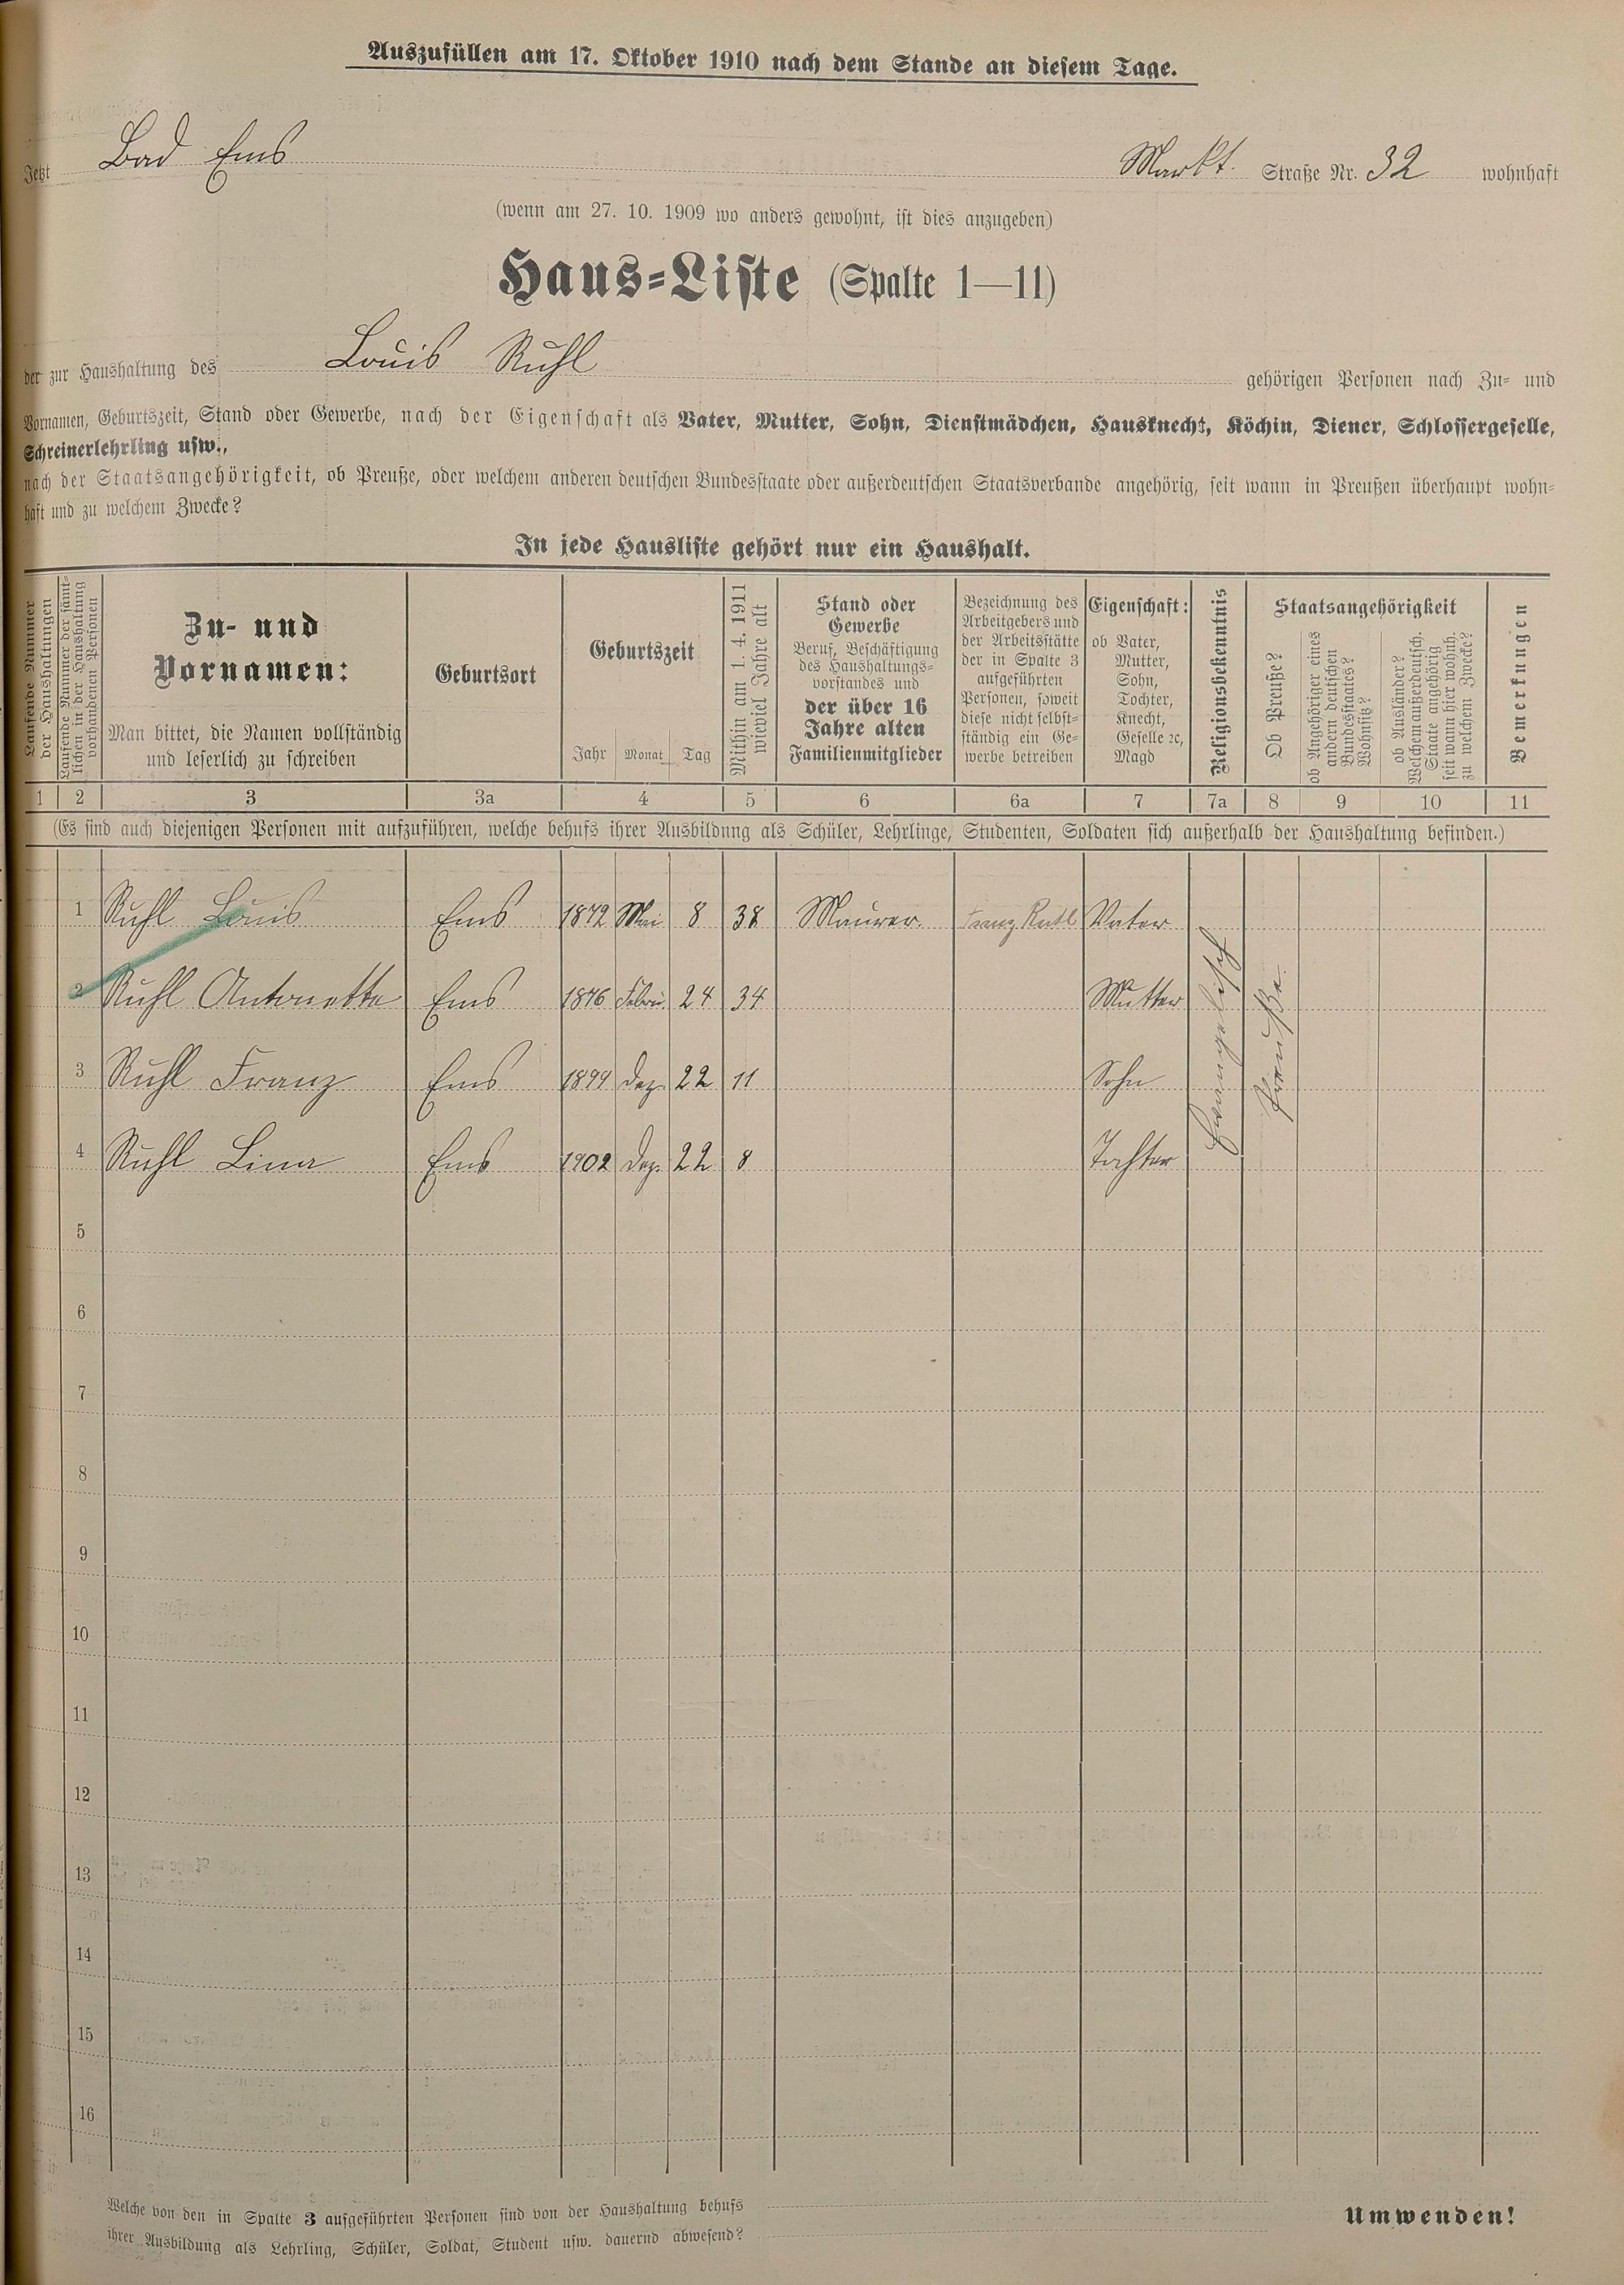 Auszufüllen am 17. Oktober 1910 nach dem Stande an diesem Tage.
Jetzt Bad Ems Markt. Straße Nr. 32 wohnhaft
(wenn am 27. 10. 1909 wo anders gewohnt, ist dies anzugeben)
Haus-Liste (Spalte 1—11)
der zur Haushaltung des Louis Ruhl gehörigen Personen nach Zu- und
Vornamen, Geburtszeit, Stand oder Gewerbe, nach der Eigenschaft als Vater, Mutter, Sohn, Dienstmädchen, Hausknecht, Köchin, Diener, Schlossergeselle,
Schreinerlehrling usw.,
nach der Staatsangehörigkeit, ob Preuße, oder welchem anderen deutschen Bundesstaate oder außerdeutschen Staatsverbande angehörig, seit wann in Preußen überhaupt wohn-
haft und zu welchem Zwecke?
In jede Hausliste gehört nur ein Haushalt.
Laufende Nummer
der Haushaltungen
Laufende Nummer der sämt-
lichen in der Haushaltung
vorhandenen Personen
Zu- und
Vornamen:
Man bittet, die Namen vollständig
und leserlich zu schreiben
Geburtsort
Geburtszeit
Jahr Monat Tag
Mithin am 1. 4. 1911
wieviel Jahre alt
Stand oder
Gewerbe
Beruf, Beschäftigung
des Haushaltungs-
vorstandes und
der über 16
Jahre alten
Familienmitglieder
Bezeichnung des
Arbeitgebers und
der Arbeitsstätte
der in Spalte 3
aufgeführten
Personen, soweit
diese nicht selbst-
ständig ein Ge-
werbe betreiben
Eigenschaft:
ob Vater,
Mutter,
Sohn,
Tochter,
Knecht,
Geselle ꝛc,
Magd
Religionsbekenntnis
Staatsangehörigkeit
Ob Preuße?
ob Angehöriger eines
andern deutschen
Bundesstaates?
Wohnsitz?
ob Ausländer?
Welchem außerdeutsch.
Staate angehörig
seit wann hier wohnh.
zu welchem Zwecke?
Bemerkungen
1 2 3 3a 4 5 6 6a 7 7a 8 9 10 11
(Es sind auch diejenigen Personen mit aufzuführen, welche behufs ihrer Ausbildung als Schüler, Lehrlinge, Studenten, Soldaten sich außerhalb der Haushaltung befinden.)
1 Ruhl Louis Ems 1872 Mai 8 38 Maurer. Franz Ruhl Vater
2 Ruhl Antonette Ems 1876 Febru. 24 34 Mutter
3 Ruhl Franz Ems 1899 Dez. 22 11 Sohn
4 Ruhl Lina Ems 1902 Dez. 22 8 Tochter
Evangelisch
Preuße.
5
6
7
8
9
10
11
12
13
14
15
16
Welche von den in Spalte 3 aufgeführten Personen sind von der Haushaltung behufs
ihrer Ausbildung als Lehrling, Schüler, Soldat, Student usw. dauernd abwesend?
Umwenden!